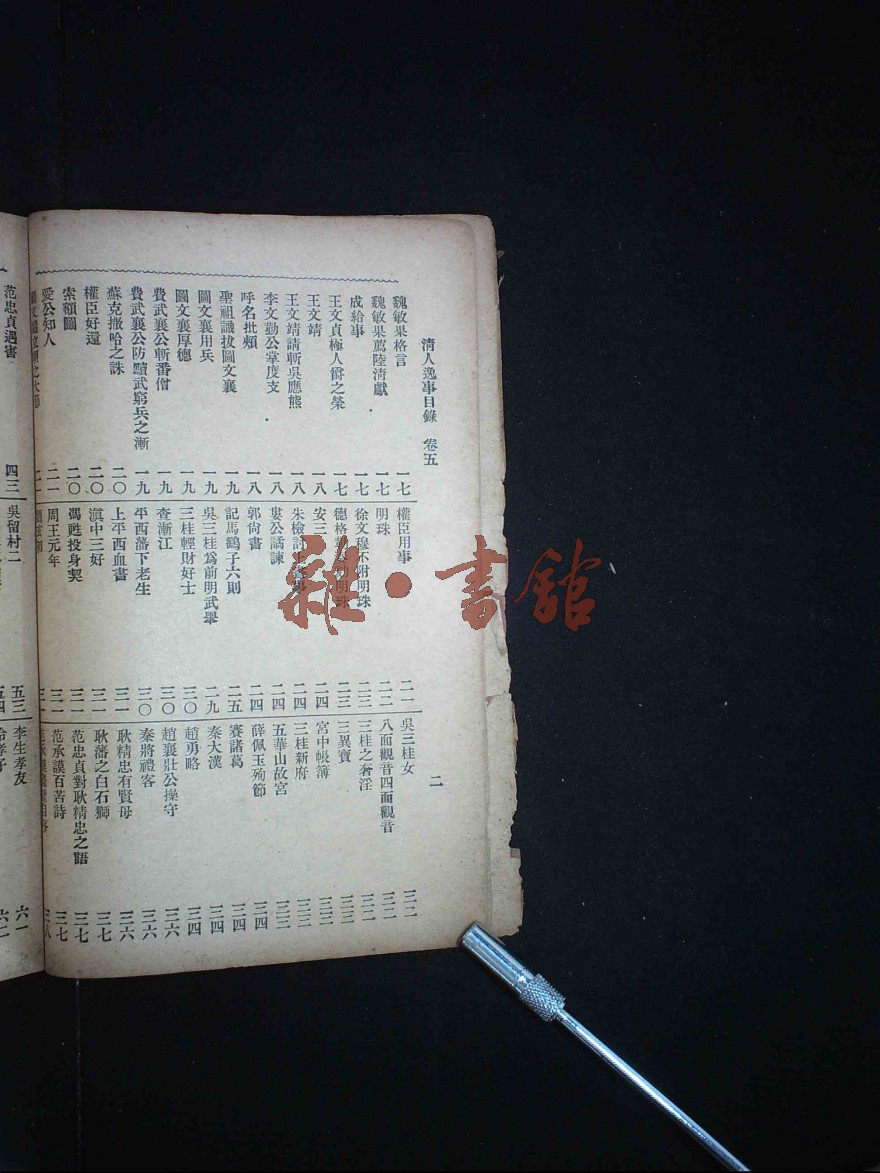 清人逸事目錄 卷五
二
魏敏果格言 一七
魏敏果薦陸清獻 一七
成給事 一七
王文貞極人爵之榮 一七
王文靖 一八
王文靖請斬吳應熊 一八
李文勤公掌度支 一八
呼名批頰 一八
聖祖識拔圖文襄 一九
圖文襄用兵 一九
圖文襄厚德 一九
費武襄公斬番僧 一九
費武襄公防黷武窮兵之漸 一九
蘇克撒哈之誅 二〇
權臣好還 二〇
索額圖 二〇
愛公知人 二一
權臣用事 二一
明珠 二二
徐文穆不附明珠 二三
德格勒 明珠 二三
安三 二四
朱檢討 二四
婁公諷諫 二四
郭尙書 二四
記馬鷂子六則 二五
吳三桂爲前明武舉 二九
三桂輕財好士 三〇
查漸江 三〇
平西藩下老生 三〇
上平西血書 三一
滇中三好 三一
馮甦投身契 三一
周王元年 三一
吳三桂女 三二
八面觀音四面觀音 三二
三桂之奢淫 三二
三異寶 三三
宮中帳簿 三三
三桂新府 三三
五華山故宮 三三
薛佩玉殉節 三四
賽諸葛 三四
秦大漢 三四
趙勇略 三四
趙襄壯公操守 三六
秦將禮客 三六
耿精忠有賢母 三六
耿藩之白石獅 三七
范忠貞對耿精忠之語 三七
范承謨百苦詩 三七
三八
范忠貞遇害 四三
吳留村二
五三
李生孝友 六一
雜·書館